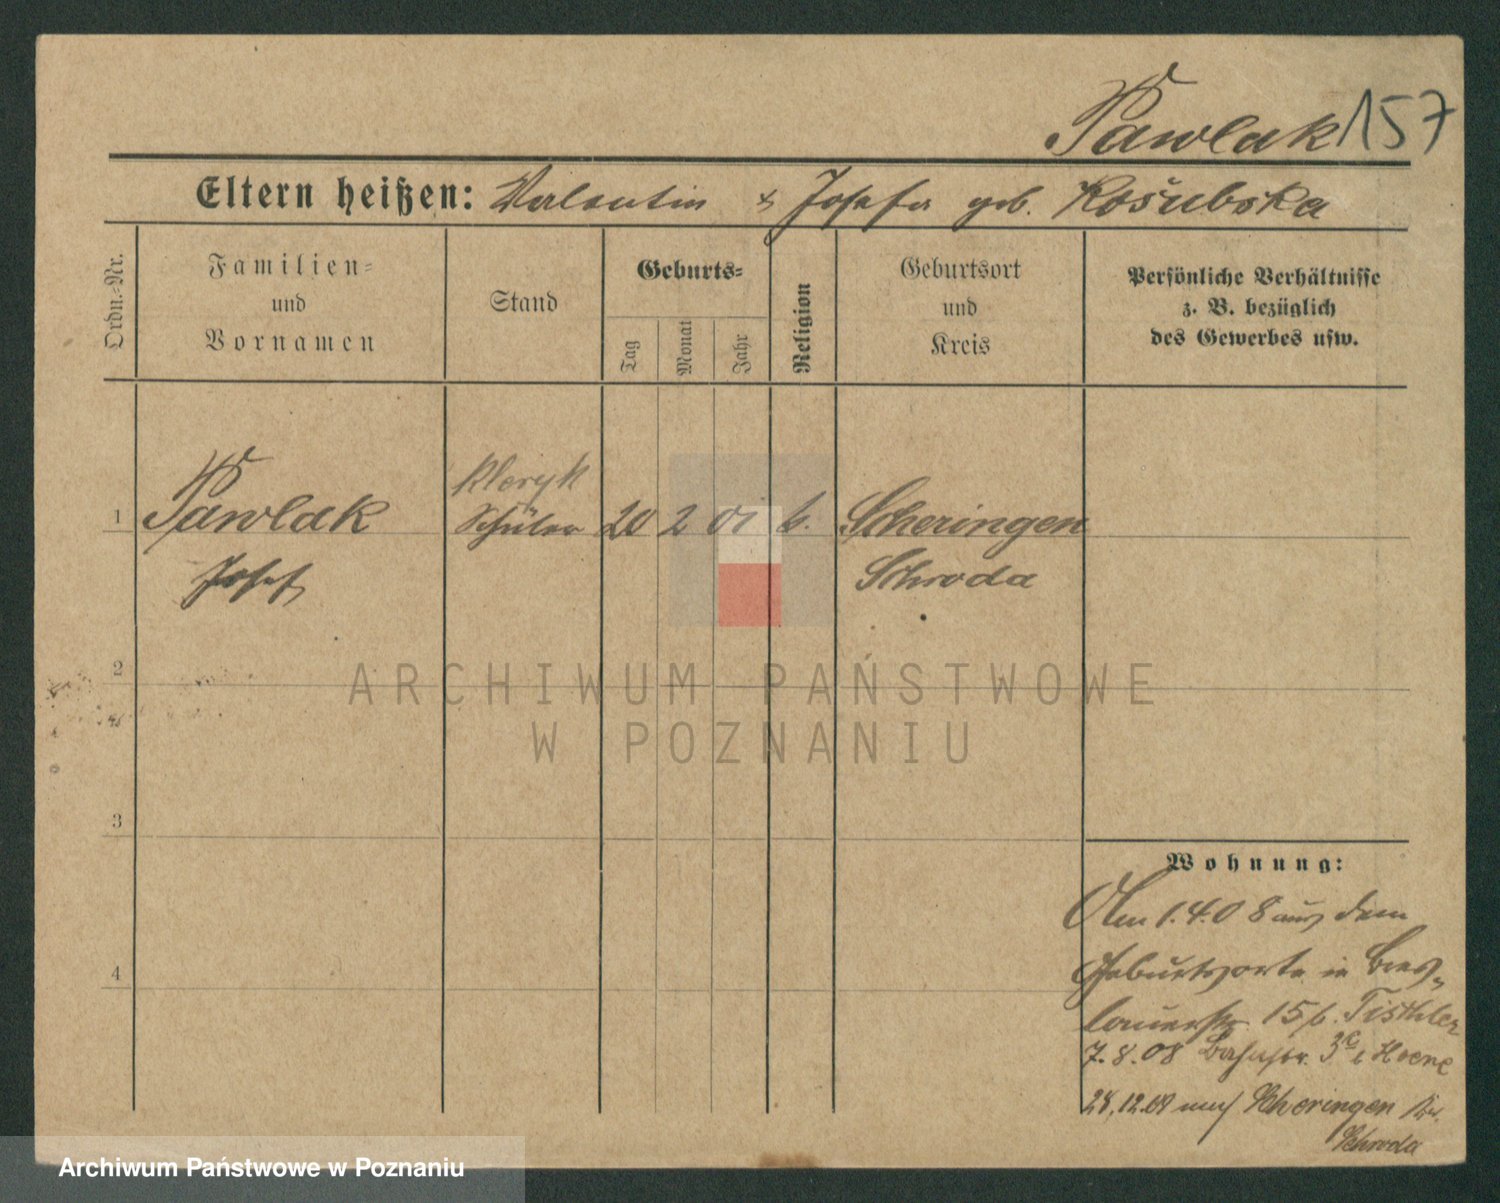 Pawlak 157
Eltern heißen: Valentin & Josefa geb. Košubska
Ordn.-Nr.
Familien- und Vornamen
Stand
Geburts-
Tag
Monat
Jahr
Religion
Geburtsort und Kreis
Persönliche Verhältnisse
z. B. bezüglich
des Gewerbes usw.
kleryk
1 Pawlak Schüler 20 2 01 k. Scheringen
Josef Schroda
2
ARCHIWUM PAŃSTWOWE
W POZNANIU
3
4
Wohnung:
Am 1.4.08 aus dem
Geburtsorte in Bres-
lauerstr. 15 b. Tischler
7.8.08 Bahnstr. 3c b Hoene
28.12.09 nach Scheringen Kr.
Schroda
Archiwum Państwowe w Poznaniu